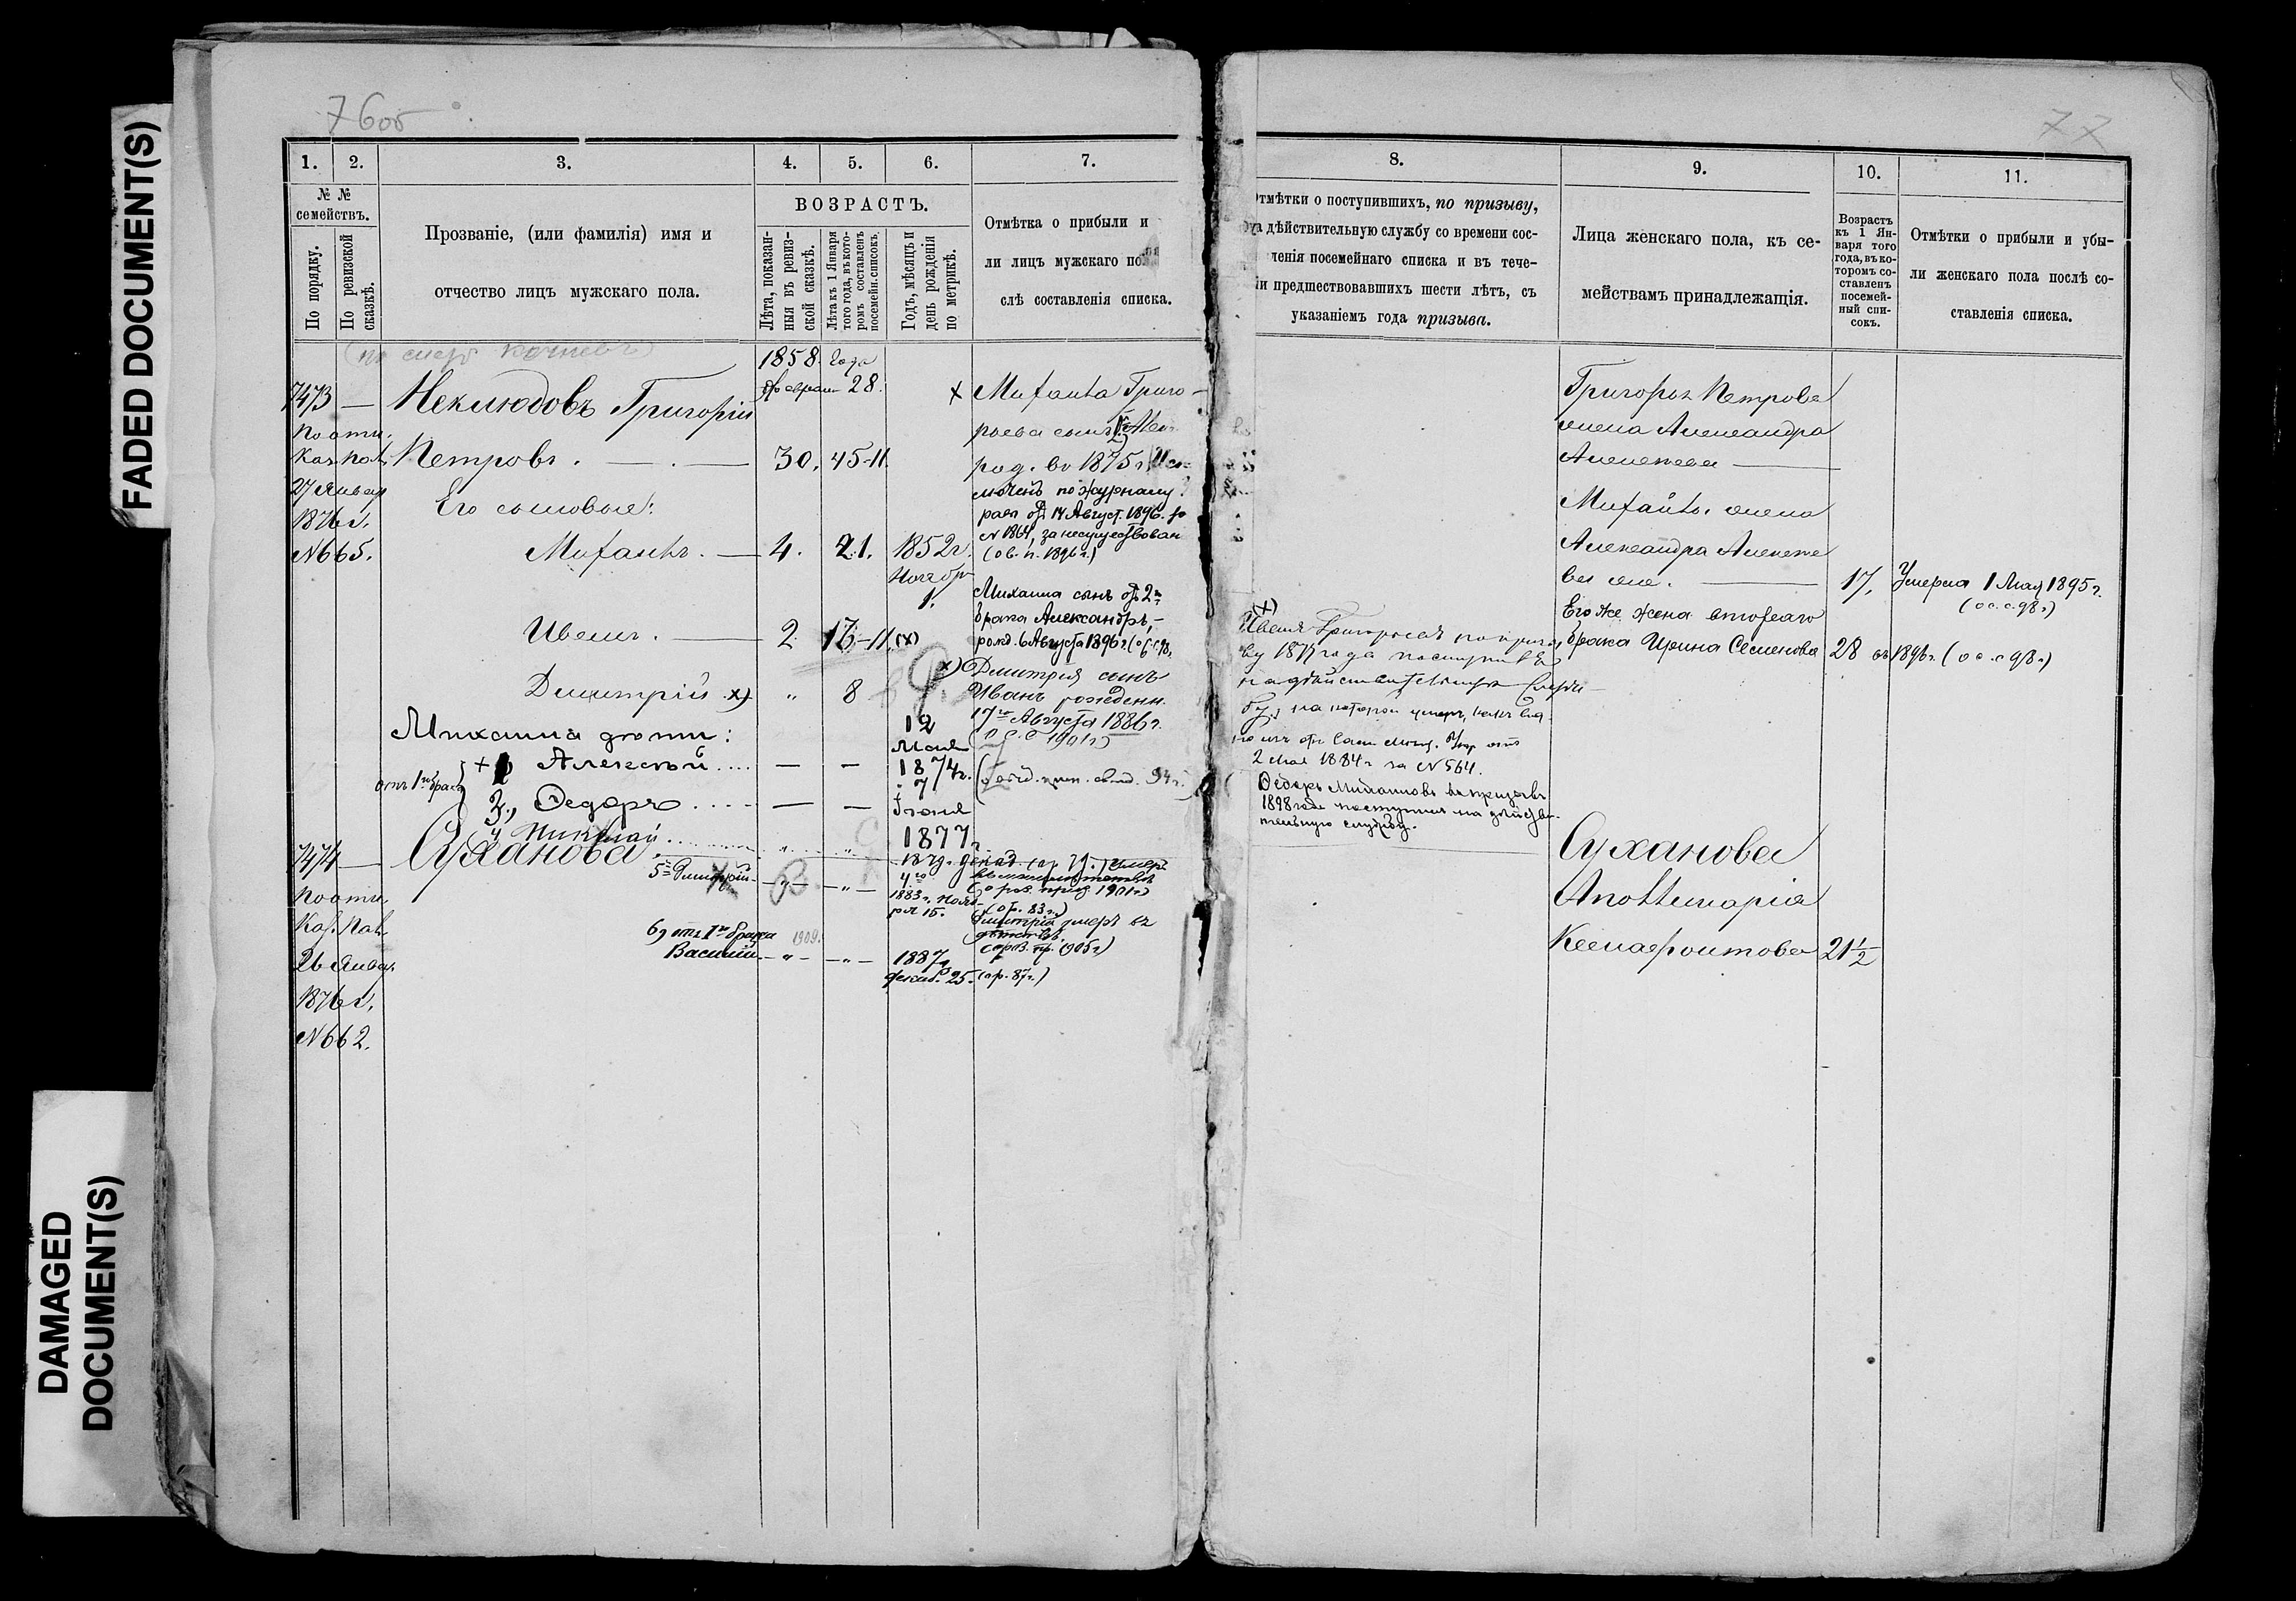 FADED DOCUMENT(S)
DAMAGED
DOCUMENT(S)
76об
1. 2. 3. 4. 5. 6. 7.
№ №
семействъ.
По порядку.
По ревизской
сказкѣ.
Прозваніе, (или фамилія) имя и
отчество лицъ мужскаго пола.
ВОЗРАСТЪ.
Лѣта, показан-
ныя въ ревиз-
ской сказкѣ.
Лѣта къ 1 Января
того года, въ кото-
ромъ составленъ
посемейн. списокъ.
Годъ, мѣсяцъ и
день рожденія
по метрикѣ.
Отмѣтка о прибыли и
ли лицъ мужскаго по
слѣ составленія списка.
1858 года
Февраля 28.
7473 — Неклюдовъ Григорій
По отн.
Каз. Пал. Петровъ . — . — 30. 45-11.
27 Январ
1876 г.
№665.
Его сыновья:
Михаилъ . — 4. 21. 1852 г.
Ноябр
1.
Иванъ . — 2. 16-11. (х)
Дмитрій х) " 8
Х Михаила Григо-
рьева сынъ
род. въ 1875 г. Иск-
люченъ по журналу
14 Август. 1896. за
№ 1864, за несуществован
(о в. п. 1896 г.)
Михаила сынъ отъ 2го
брака Александръ, —
рожд. 6 Августа 1896 г.
х) Дмитрія сынъ
Иванъ рожденн.
17го Августа 1886 г.
(о с. с 1901 г)
Михаила дѣти:
отъ 1го брака
+ Алексѣй .... — — 12
Мая
1874 г.
3., Ѳедоръ .... — — 7
Іюля
1877 г.
4 Николай ........ " "
1879. декаб.
4го
5= Дмитрій — " — " — 1883 г. Нояб-
ря 15.
(о р. 83 г.)
Дмитрій умеръ въ
дѣтствѣ
(о рев. пр. 1905 г)
6, отъ 1го брака 1909.
Василій — " — " — 1887,
декаб. 25. (о р. 87 г.)
7474 — Суханова
По отн.
Каз. Пал.
26 Январ.
1876 г.
№662.
77
8. 9. 10. 11.
Отмѣтки о поступившихъ, по призыву,
на дѣйствительную службу со времени сос-
ленія посемейнаго списка и въ тече-
и предшествовавшихъ шести лѣтъ, съ
указаніемъ года призыва.
Лица женскаго пола, къ се-
мействамъ принадлежащія.
Возрастъ
къ 1 Ян-
варя того
года, въ ко-
торомъ со-
ставленъ
посемей-
ный спи-
сокъ.
Отмѣтки о прибыли и убы-
ли женскаго пола послѣ со-
ставленія списка.
(х)
Иванъ Григорьевъ по призы
ву 1877 года поступилъ
на дѣйствительную служ-
бу, на которой умеръ, какъ вид
но изъ
2 Мая 1884 г за № 564.
Ѳедоръ Михаиловъ въ призывъ
1898 года поступилъ на дѣйстви-
тельную службу.
Григорья Петрова
жена Александра
Алексѣева —
Михаила жена
Александра Алексѣе
ва —
17. Умерла 1 Мая 1895 г.
(о с. с. 98 г)
Его же жена втораго
брака Ирина Семенова 28 въ 1896 г. (о с. с 98 г)
Суханова
Аполлинарія
Ксенофонтова 21½